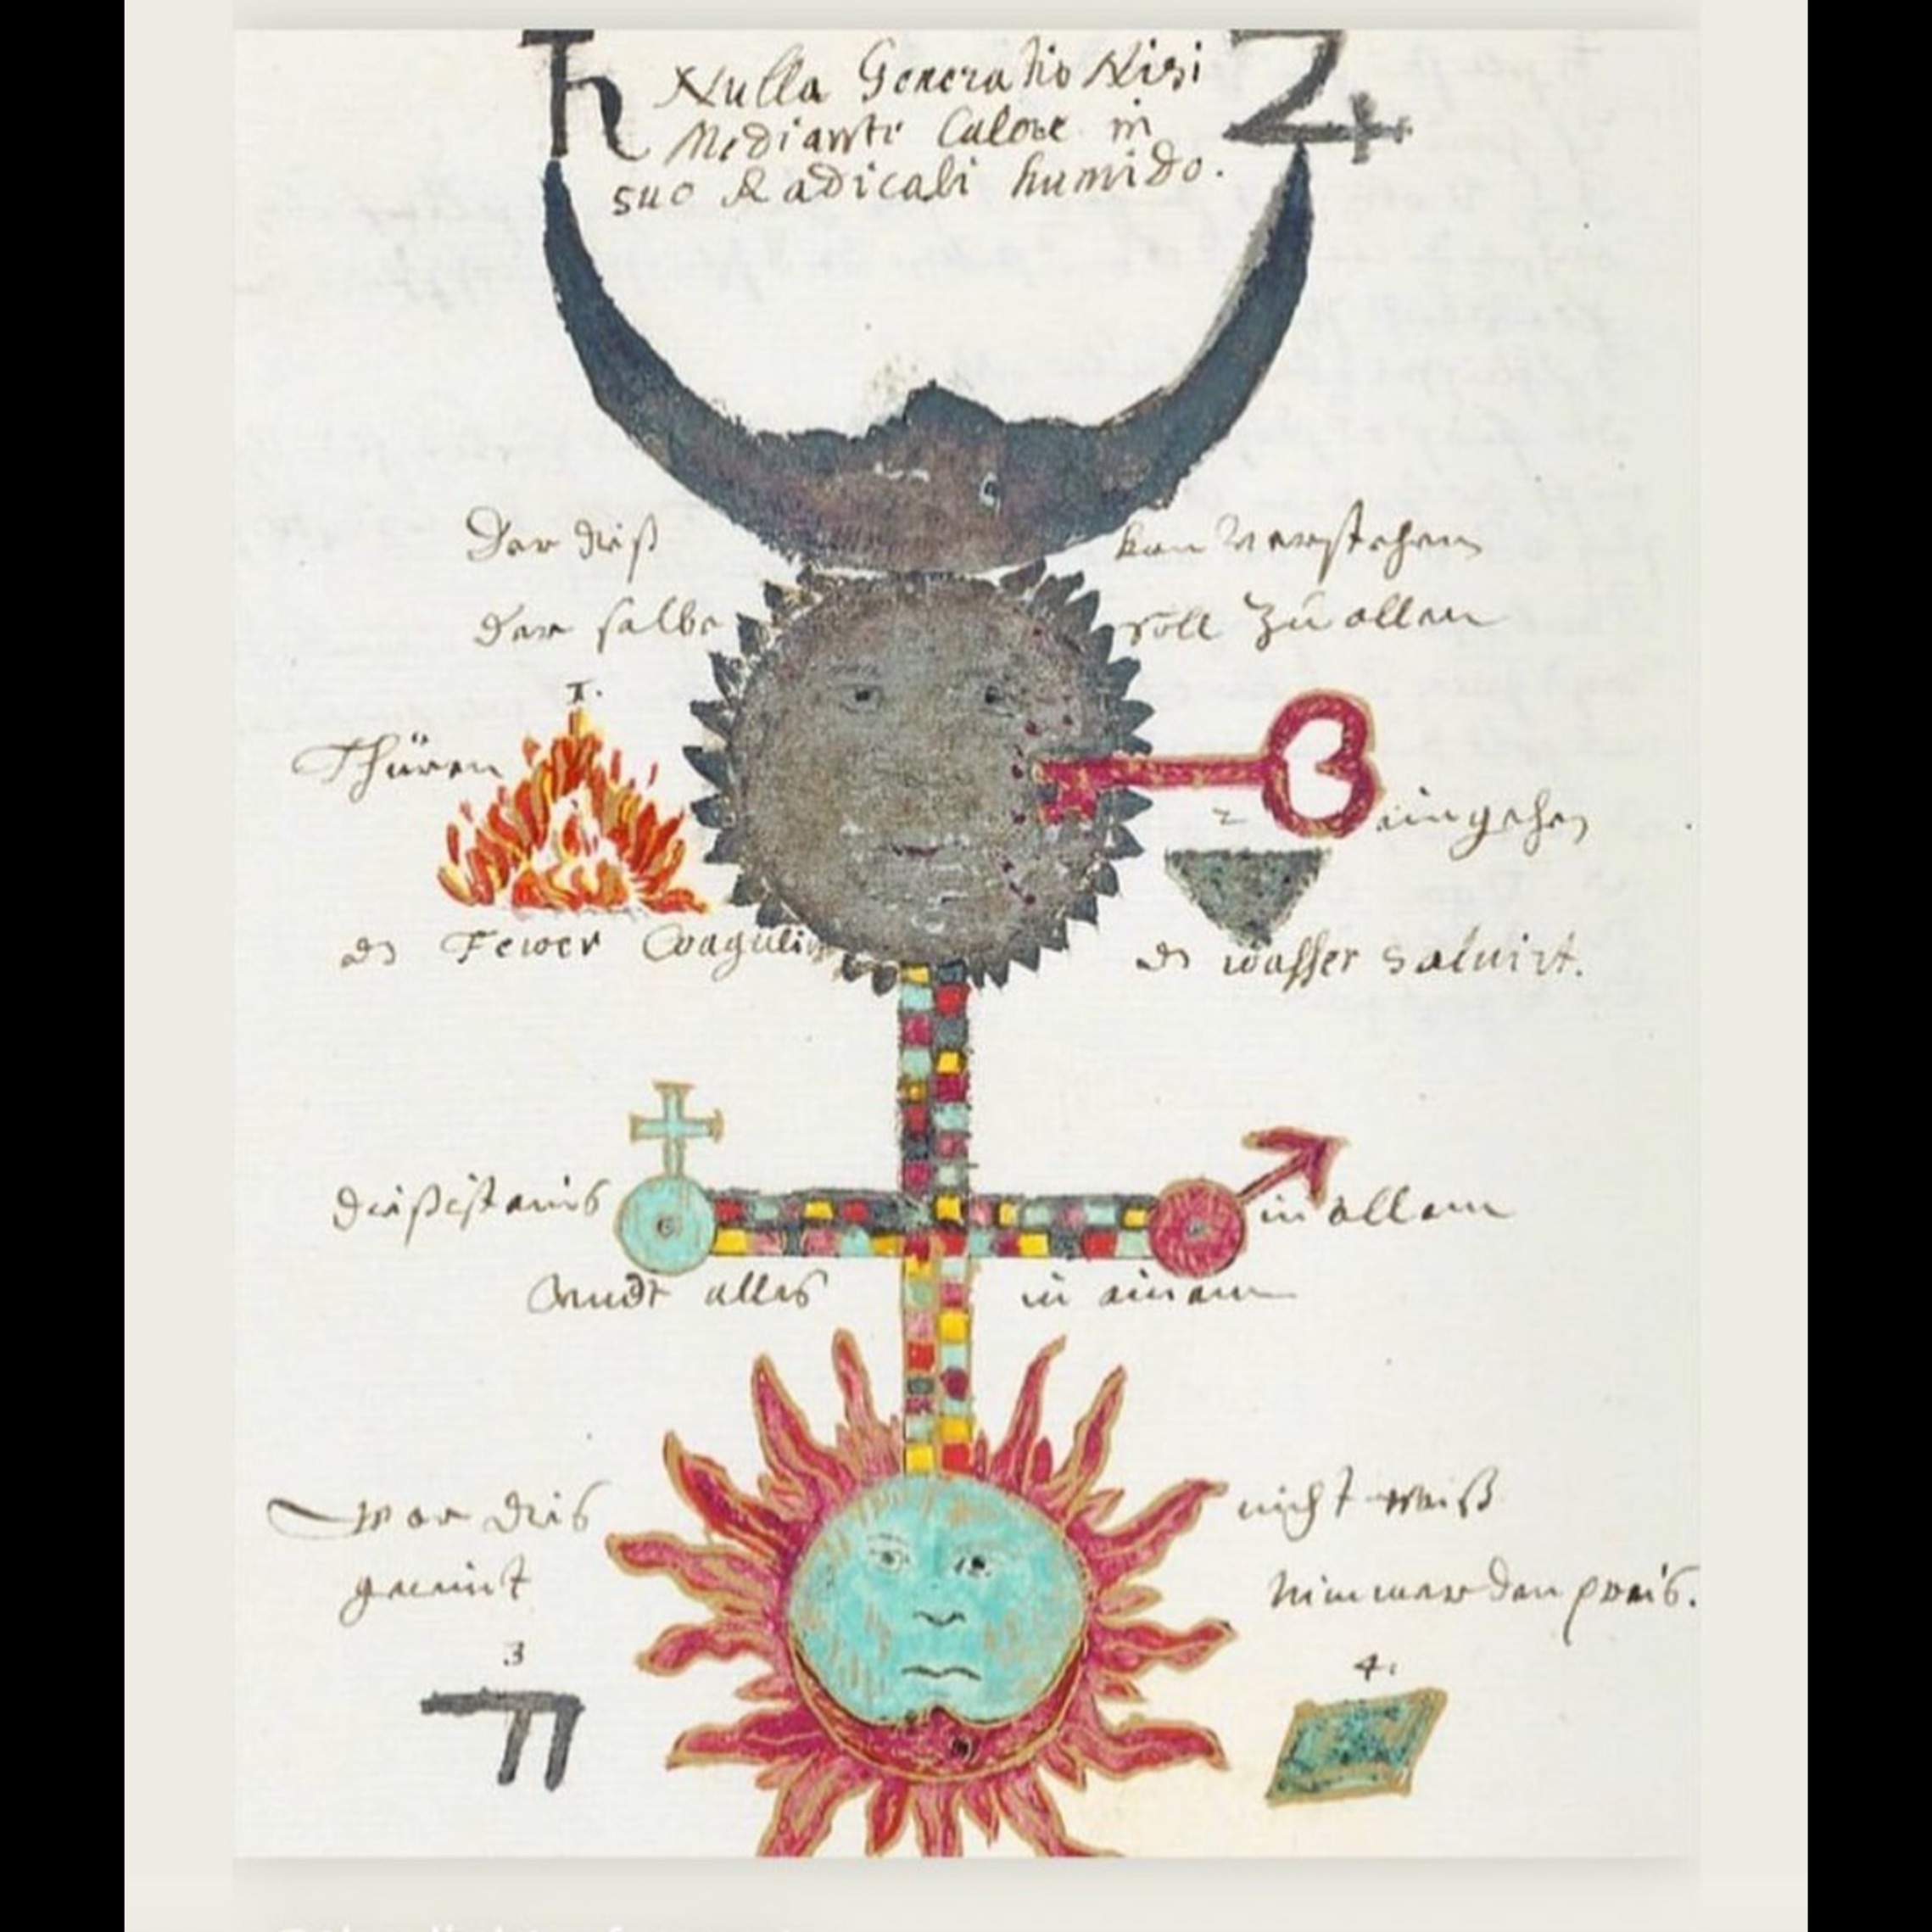 ♄ Nulla Generatio Nisi ♃
Mediante Calore in
suo Radicali humido.
Der dieß kan Verstehen
der selbe soll Zu allen
1.
Thüren eingehen
2
ds Fewer Coagulirt ds wasser solvirt.
dieß ist eins in allem
Vndt alles in einem
Wer dies nicht weiß
gewint nimmer den preis.
3 4.